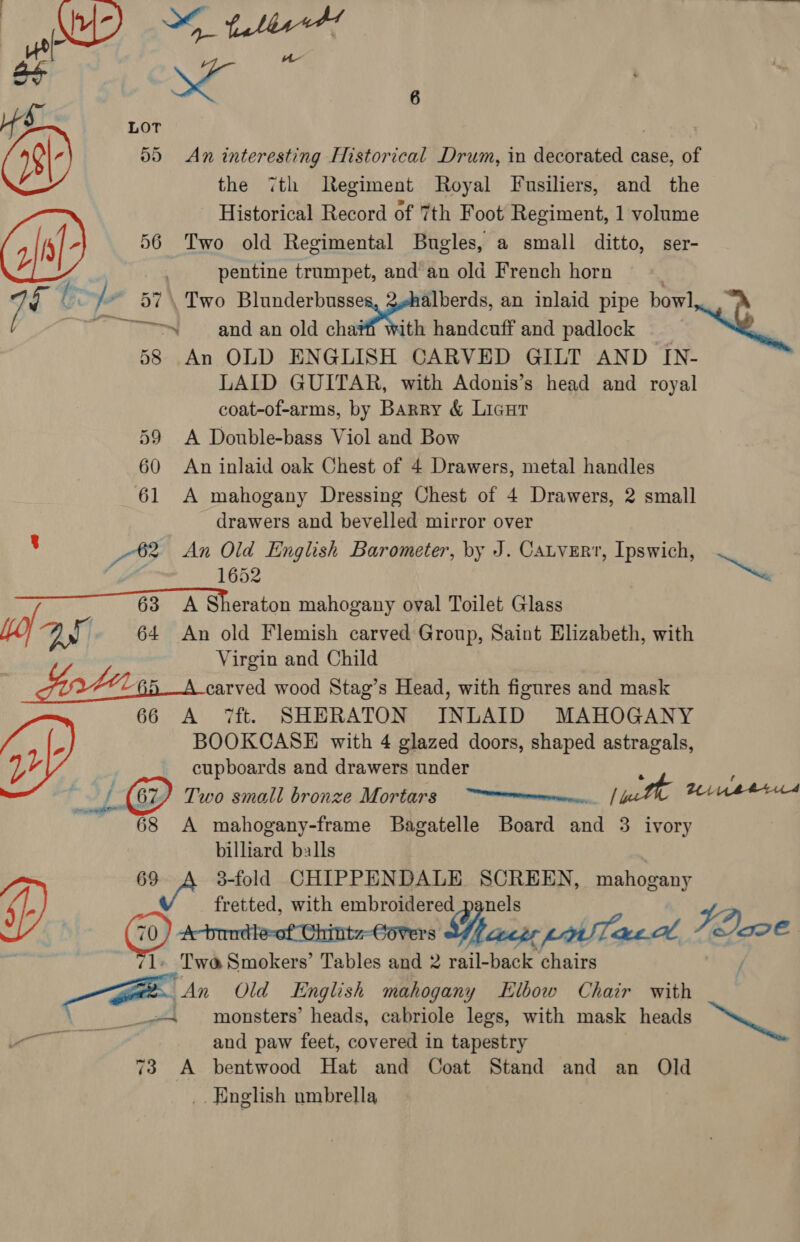 6
LOT
55 An interesting Historical Drum, in decorated case, of
the 7th Regiment Royal Fusiliers, and the
Historical Record of 7th Foot Regiment, 1 volume
56 Two old Regimental Bugles, a small ditto, ser-
pentine trumpet, and an old French horn
57 Two Blunderbusses, 2 halberds, an inlaid pipe bowl,
and an old chain with handcuff and padlock
58 An OLD ENGLISH CARVED GILT AND IN-
LAID GUITAR, with Adonis's head and royal
coat-of-arms, by BARRY & LIGHT
59 A Double-bass Viol and Bow
60 An inlaid oak Chest of 4 Drawers, metal handles
61 A mahogany Dressing Chest of 4 Drawers, 2 small
drawers and bevelled mirror over
62 An Old English Barometer, by J. CALVERT, Ipswich,
1652
63 A Sheraton mahogany oval Toilet Glass
64 An old Flemish carved Group, Saint Elizabeth, with
Virgin and Child
65 A carved wood Stag's Head, with figures and mask
66 A 7ft. SHERATON INLAID MAHOGANY
BOOKCASE with 4 glazed doors, shaped astragals,
cupboards and drawers under
67 Two small bronze Mortars
68 A mahogany-frame Bagatelle Board and 3 ivory
billiard balls
69 A 3-fold CHIPPENDALE SCREEN, mahogany
fretted, with embroidered panels
70 A bundle of Chintz Covers
71 Two Smokers' Tables and 2 rail-back chairs
72 An Old English mahogany Elbow Chair with
monsters' heads, cabriole legs, with mask heads
and paw feet, covered in tapestry
73 A bentwood Hat and Coat Stand and an Old
English umbrella